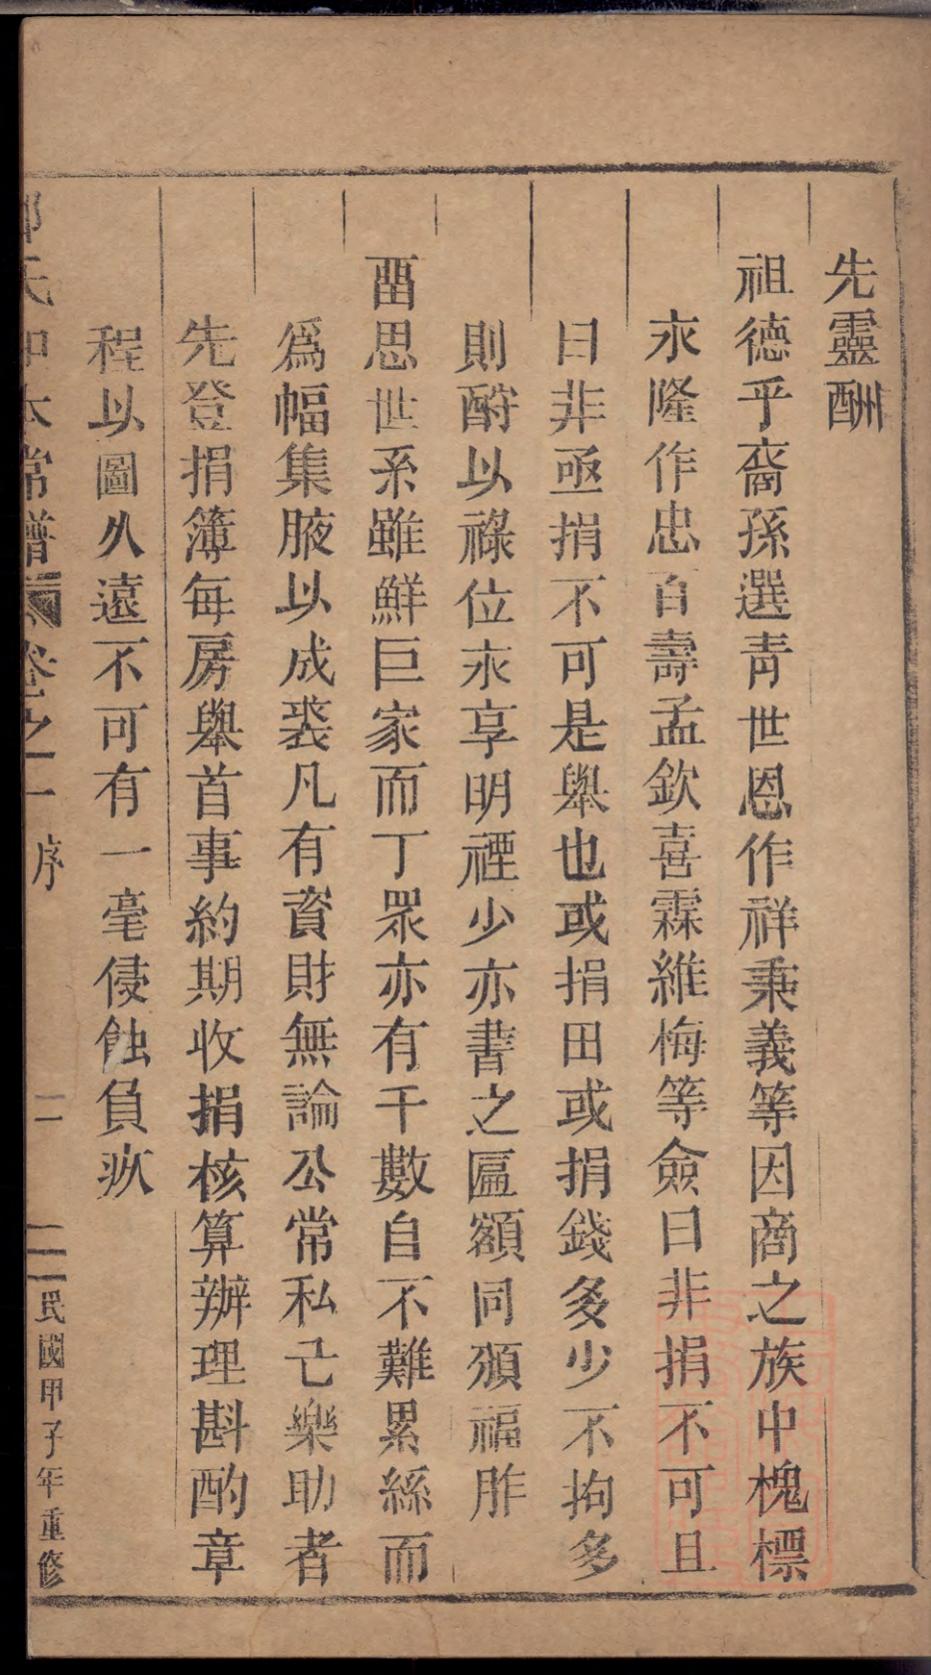 先靈酬
祖德乎裔孫選青世恩作祥秉義等因商之族中槐標
永隆作忠百壽孟欽喜霖維梅等僉曰非捐不可且
曰非亟捐不可是舉也或捐田或捐錢多少不拘多
則酧以祿位永享明禋少亦書之匾額同頒福胙
畱思世系雖鮮巨家而丁眾亦有千數自不難累絲而
爲幅集腋以成裘凡有資財無論公常私己樂助者
先登捐簿每房舉首事約期收捐核算辦理斟酌章
程以圖久遠不可有一毫侵蝕負疚
氏中本常譜 卷之一 序 二 民國甲子年重修